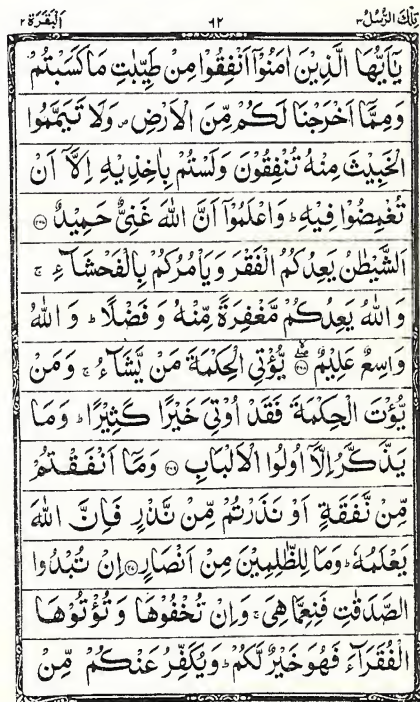 تِلْكَ الرُّسُلُ ٣ ٦٢ اَلْبَقَرَة ٢
يٰۤاَيُّهَا الَّذِيْنَ اٰمَنُوْۤا اَنْفِقُوْا مِنْ طَيِّبٰتِ مَا كَسَبْتُمْ
وَمِمَّاۤ اَخْرَجْنَا لَكُمْ مِّنَ الْاَرْضِ ص وَلَا تَيَمَّمُوا
الْخَبِيْثَ مِنْهُ تُنْفِقُوْنَ وَلَسْتُمْ بِاٰخِذِيْهِ اِلَّاۤ اَنْ
تُغْمِضُوْا فِيْهِ ؕ وَاعْلَمُوْۤا اَنَّ اللهَ غَنِيٌّ حَمِيْدٌ
اَلشَّيْطٰنُ يَعِدُكُمُ الْفَقْرَ وَيَاْمُرُكُمْ بِالْفَحْشَآءِ ۚ
وَاللهُ يَعِدُكُمْ مَّغْفِرَةً مِّنْهُ وَفَضْلًا ؕ وَاللهُ
وَاسِعٌ عَلِيْمٌ يُّؤْتِي الْحِكْمَةَ مَنْ يَّشَآءُ ۚ وَمَنْ
يُّؤْتَ الْحِكْمَةَ فَقَدْ اُوْتِيَ خَيْرًا كَثِيْرًا ؕ وَمَا
يَذَّكَّرُ اِلَّاۤ اُولُوا الْاَلْبَابِ وَمَاۤ اَنْفَقْتُمْ
مِّنْ نَّفَقَةٍ اَوْ نَذَرْتُمْ مِّنْ نَّذْرٍ فَاِنَّ اللهَ
يَعْلَمُهٗ ؕ وَمَا لِلظّٰلِمِيْنَ مِنْ اَنْصَارٍ اِنْ تُبْدُوا
الصَّدَقٰتِ فَنِعِمَّا هِيَ ۚ وَاِنْ تُخْفُوْهَا وَتُؤْتُوْهَا
الْفُقَرَآءَ فَهُوَ خَيْرٌ لَّكُمْ ؕ وَيُكَفِّرُ عَنْكُمْ مِّنْ